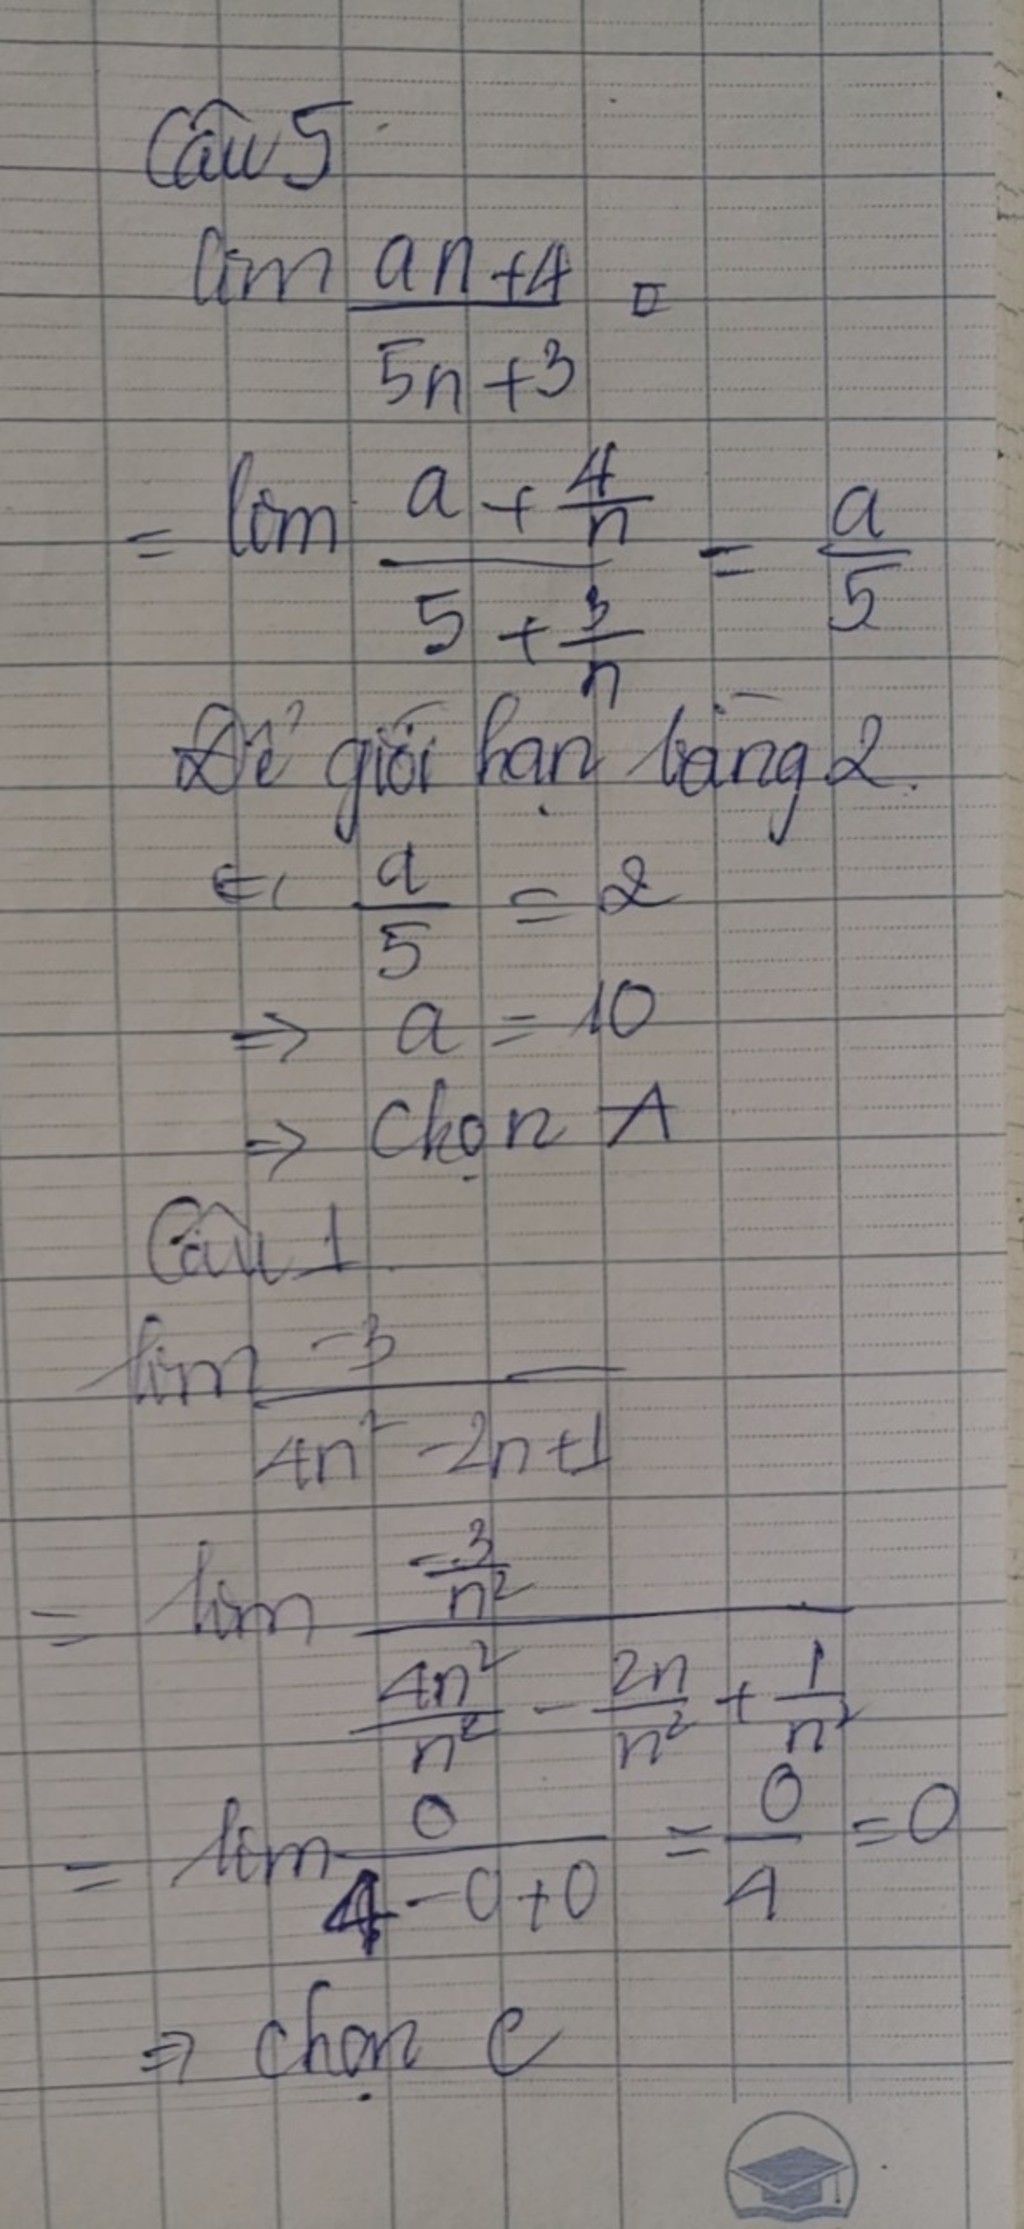 Câu 5
lim \frac{an+4}{5n+3} =
= lim \frac{a + \frac{4}{n}}{5 + \frac{3}{n}} = \frac{a}{5}
Để giới hạn bằng 2.
\frac{a}{5} = 2
⇒ a = 10
⇒ Chọn A
Câu 1
lim \frac{-3}{4n^2 - 2n + 1}
= lim \frac{\frac{-3}{n^2}}{\frac{4n^2}{n^2} - \frac{2n}{n^2} + \frac{1}{n^2}}
= lim \frac{0}{4 - 0 + 0} = \frac{0}{4} = 0
⇒ chọn C